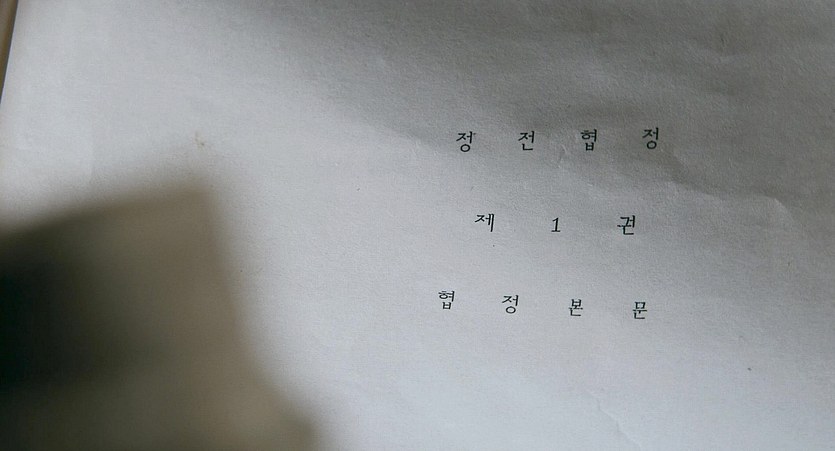 정 전 협 정
제 1 권
협 정 본 문